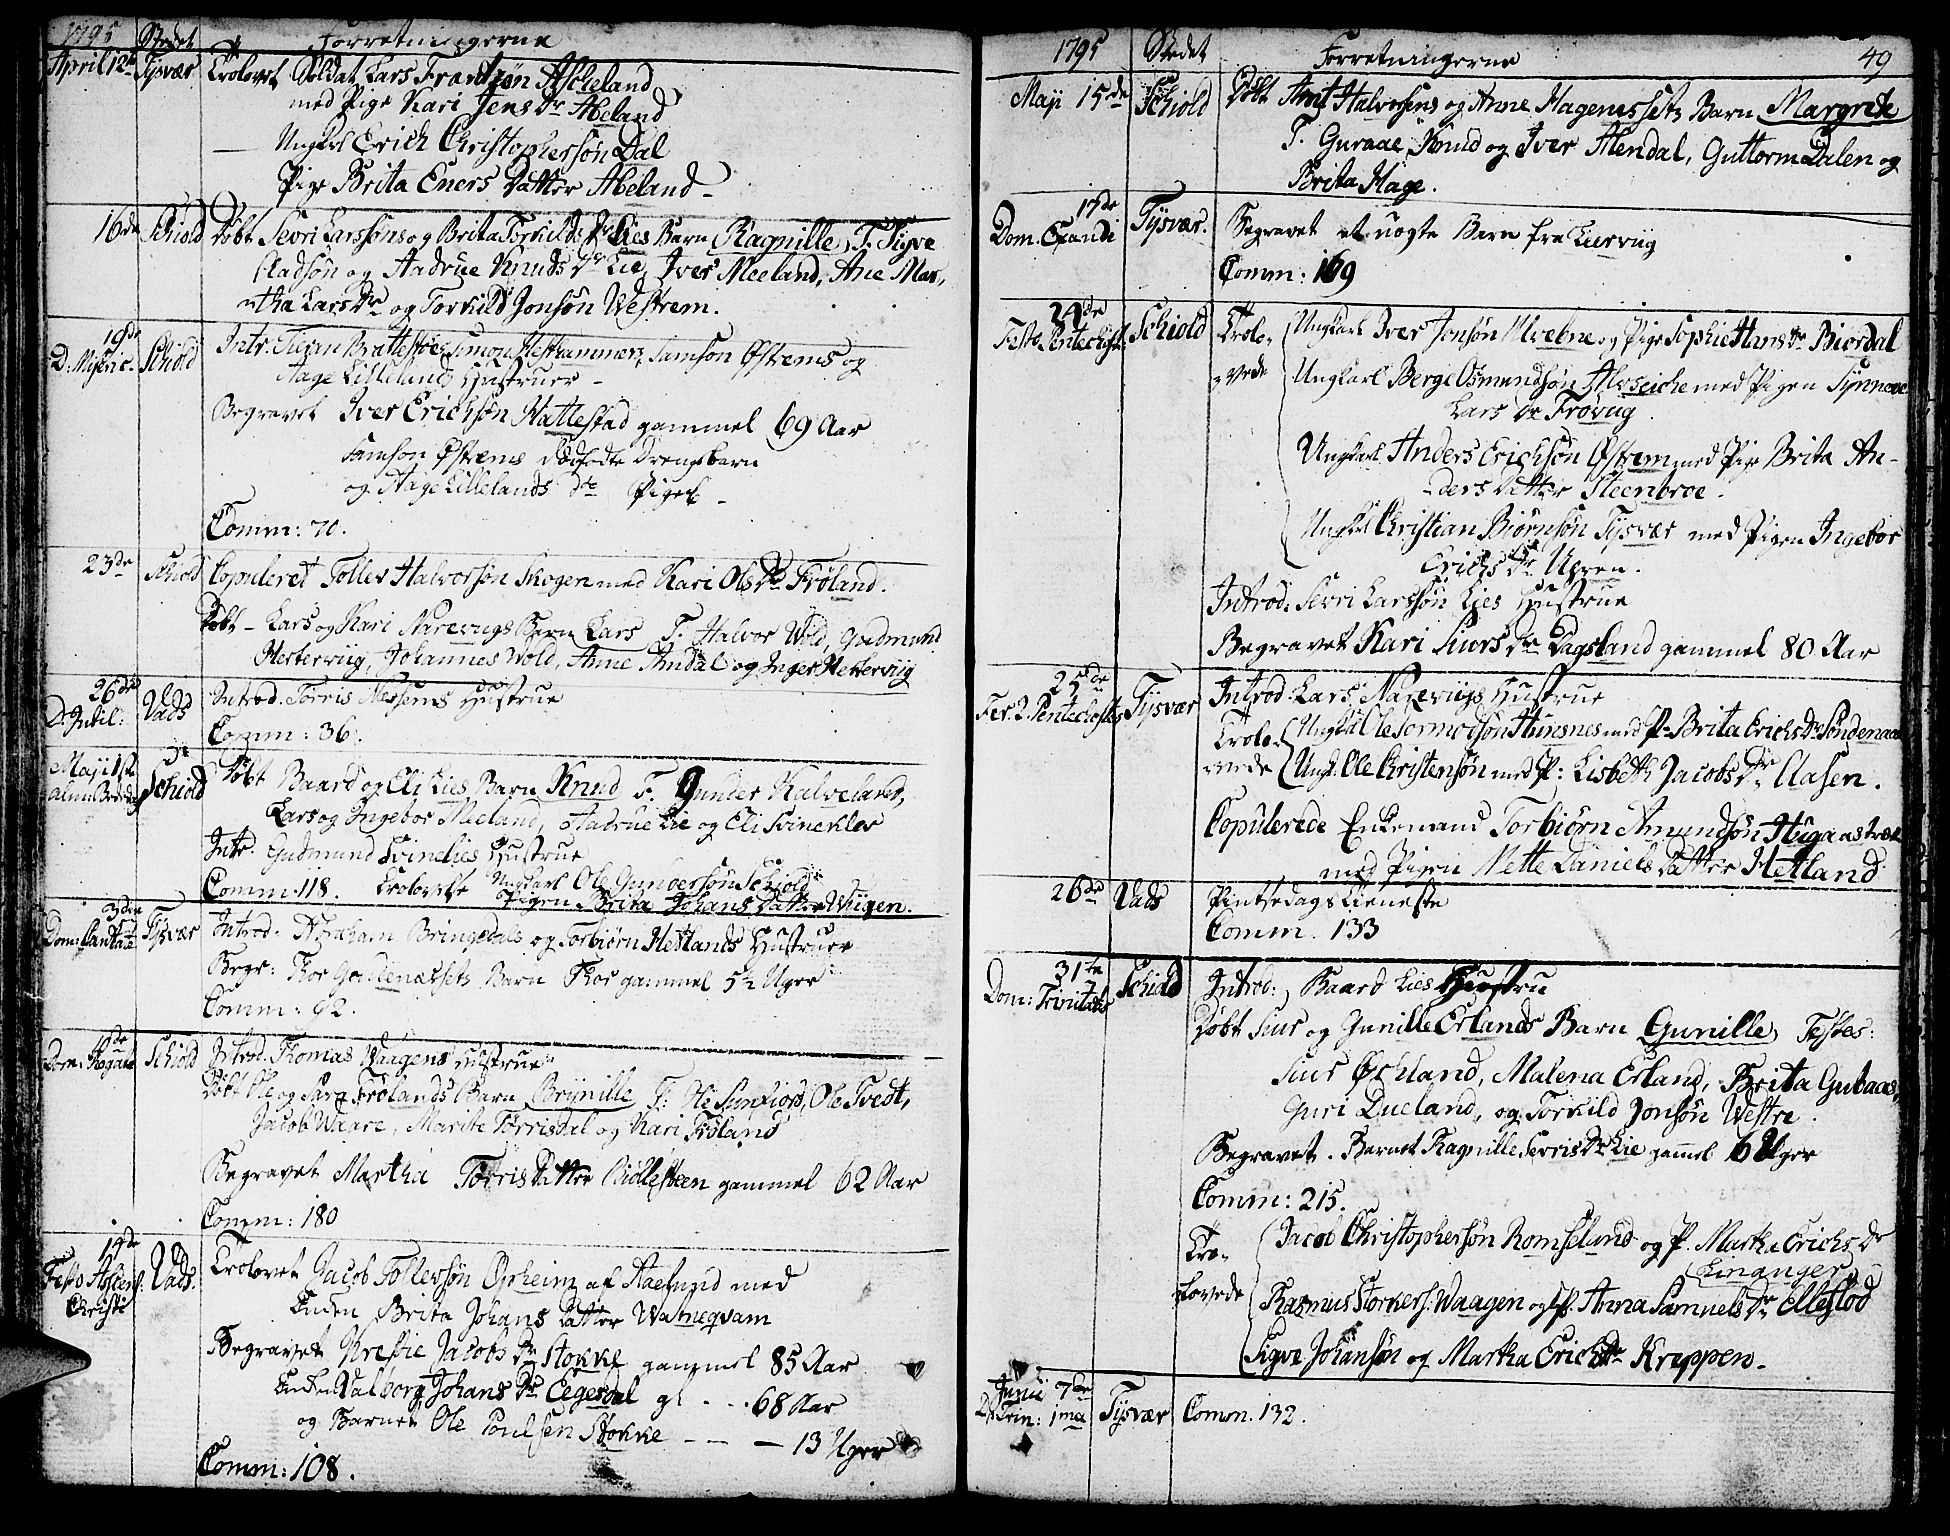 1795 Stedet Forretningerne
April 12te Tÿsvær Trolovet Soldat Lars Frantzøn Ascheland
med Pige Kari Jens Dr Abeland
Ungkl Erich Christophersøn Dal
Pige Brita Eners Datter Abeland
16de Schiold Døbt Sevri Larssøns og Brita Torkilds Dr Lies Barn Ragnille, T. Sigve
Aadsøn og Aadrue Knuds Dr Lie, Iver Meeland, Ane Mar-
tha Lars Dr og Torkild Jonsøn Westrem.
19de D: Miseric. Schiold Intr: Brattestøe, Simon Hesthammers, Samson Østrems og
Aage Lilleland Hustruer
Begravet Iver Erichsøn Hattestad gammel 69 Aar
Samson Østrems dødfødte Drengebarn
og Aage Lillelands do Pigeb.
Comm: 70.
23de Schiold Copuleret Tollev Halvorsøn Skogen med Kari Ols Dr Frøland.
Døbt Lars og Kari Narevigs Barn Lars T. Halvor Wold, Gudmund
Hertervig, Johannes Wold, Anne Andal og Inger Hertervig
26de D. Jubil: Vads Introd. Torris Nessems Hustrue
Comm: 36.
Maji 1ste alm. Bededag Schiold Døbt Baard og Eli Lies Barn Knud T. Gunder Kalveland,
Lars og Ingebor Meeland, Aadrue Lie og Eli Svinekler
Intr. Gudmund Svinelies Hustrue
Comm. 118. Trolovede Ungkarl Ole Gundersøn Schiold
Pigen Brita Johans Datter Wiigen.
3die Dom: Cantate Tÿsvær Introd. Abraham Bringedals og Torbiørn Hetlands Hustruer
Begr: Thor Godenæssets Barn Thor gammel 5½ Uger
Comm: 62.
Dom: Rogate Schiold Introd. Thomas Waagens Hustrue
Døbt Ole og Sara Frølands Barn Brÿnille T: Ole Sunfiord, Ole Tvedt,
Jacob Waare, Marite Tørrisdal og Kari Frøland
Begravet Martha Tørris Datter Bidlesteen gammel 62 Aar
Comm: 180
14de Festo Ascens: Christi Vads. Trolovet Jacob Tollevsøn Opheim af Aaelsund med
Enken Brita Johans Datter Watneqvam
Begravet Krestie Jacobs Dr Stokke gammel 85 Aar
Enken Valborg Johans Dr Eegesdal gl - - 68 Aar
og Barnet Ole Poulsen Stokke - - - 13 Uger
Comm: 108.
1795 Stedet Forretningerne 49
Maji 15de Schiold Døbt Arnt Halvorsens og Anne Hagenessets Barn Margrete
T. Guraae, Knud og Iver Alendal, Guttorm Dalen og
Brita Hage.
17de Dom. Exaudi Tÿsvær. Begravet et uægte Barn fra Liervig
Comm: 169
24de Festo Pentechost. Schiold Trolo-
vede Ungkarl Iver Jonsøn Alvebne og Pige Sophie Hans Dr Biordal
Ungkarl Berge Osmundsøn Alvseiche med Pigen Sÿnnove
Lars Dr Frøvig
Ungkarl Anders Erichsøn Østrem med Pige Brita An-
ders Datter Steenbroe.
Ungkl Christian Biørnsøn Tÿsvær med Pigen Ingebor
Erichs Dr Ugren.
Introd: Sevri Larssøn Lies Hustrue
Begravet Kari Siurs Dr Dagsland gammel 80 Aar
25de Fer. 2. Pentechostes Tÿsvær Introd. Lars Narevigs Hustrue
Trolo-
vede Ungkl Ole Tormodsøn Hunsnes med P. Brita Erichs Dr Søndenaa
Ungk. Ole Christensøn med P: Lisbeth Jacobs Dr Aasen.
Copulerede Enkemand Torbiørn Amundsøn Haga
med Pigen Mette Daniels Datter Hetland
26de Vads Pintsedags Tieneste
Comm. 133
31te Dom: Trinitatis Schiold Introd: Baard Lies Hustru
Døbt Siur og Gunille Erlands Barn Gunille, Testes:
Siur Øchland, Malena Erland, Brita Gubaas,
Guri Dueland, og Torkild Jonsøn Westre.
Begravet. Barnet Ragnille Sevris Dr Lie gammel 6 Uger
Comm: 215.
Tro-
lovede Jacob Christophersøn Romseland og P. Martha Erichs Dr
Linanger
Rasmus Storkers. Waagen og P. Anna Samuels Dr Ellestod
Sigve Johansøn og Martha Erichs Dr Kreppen.
Junii 7de D. Trin: 1ma Tÿsvær Comm. 132.